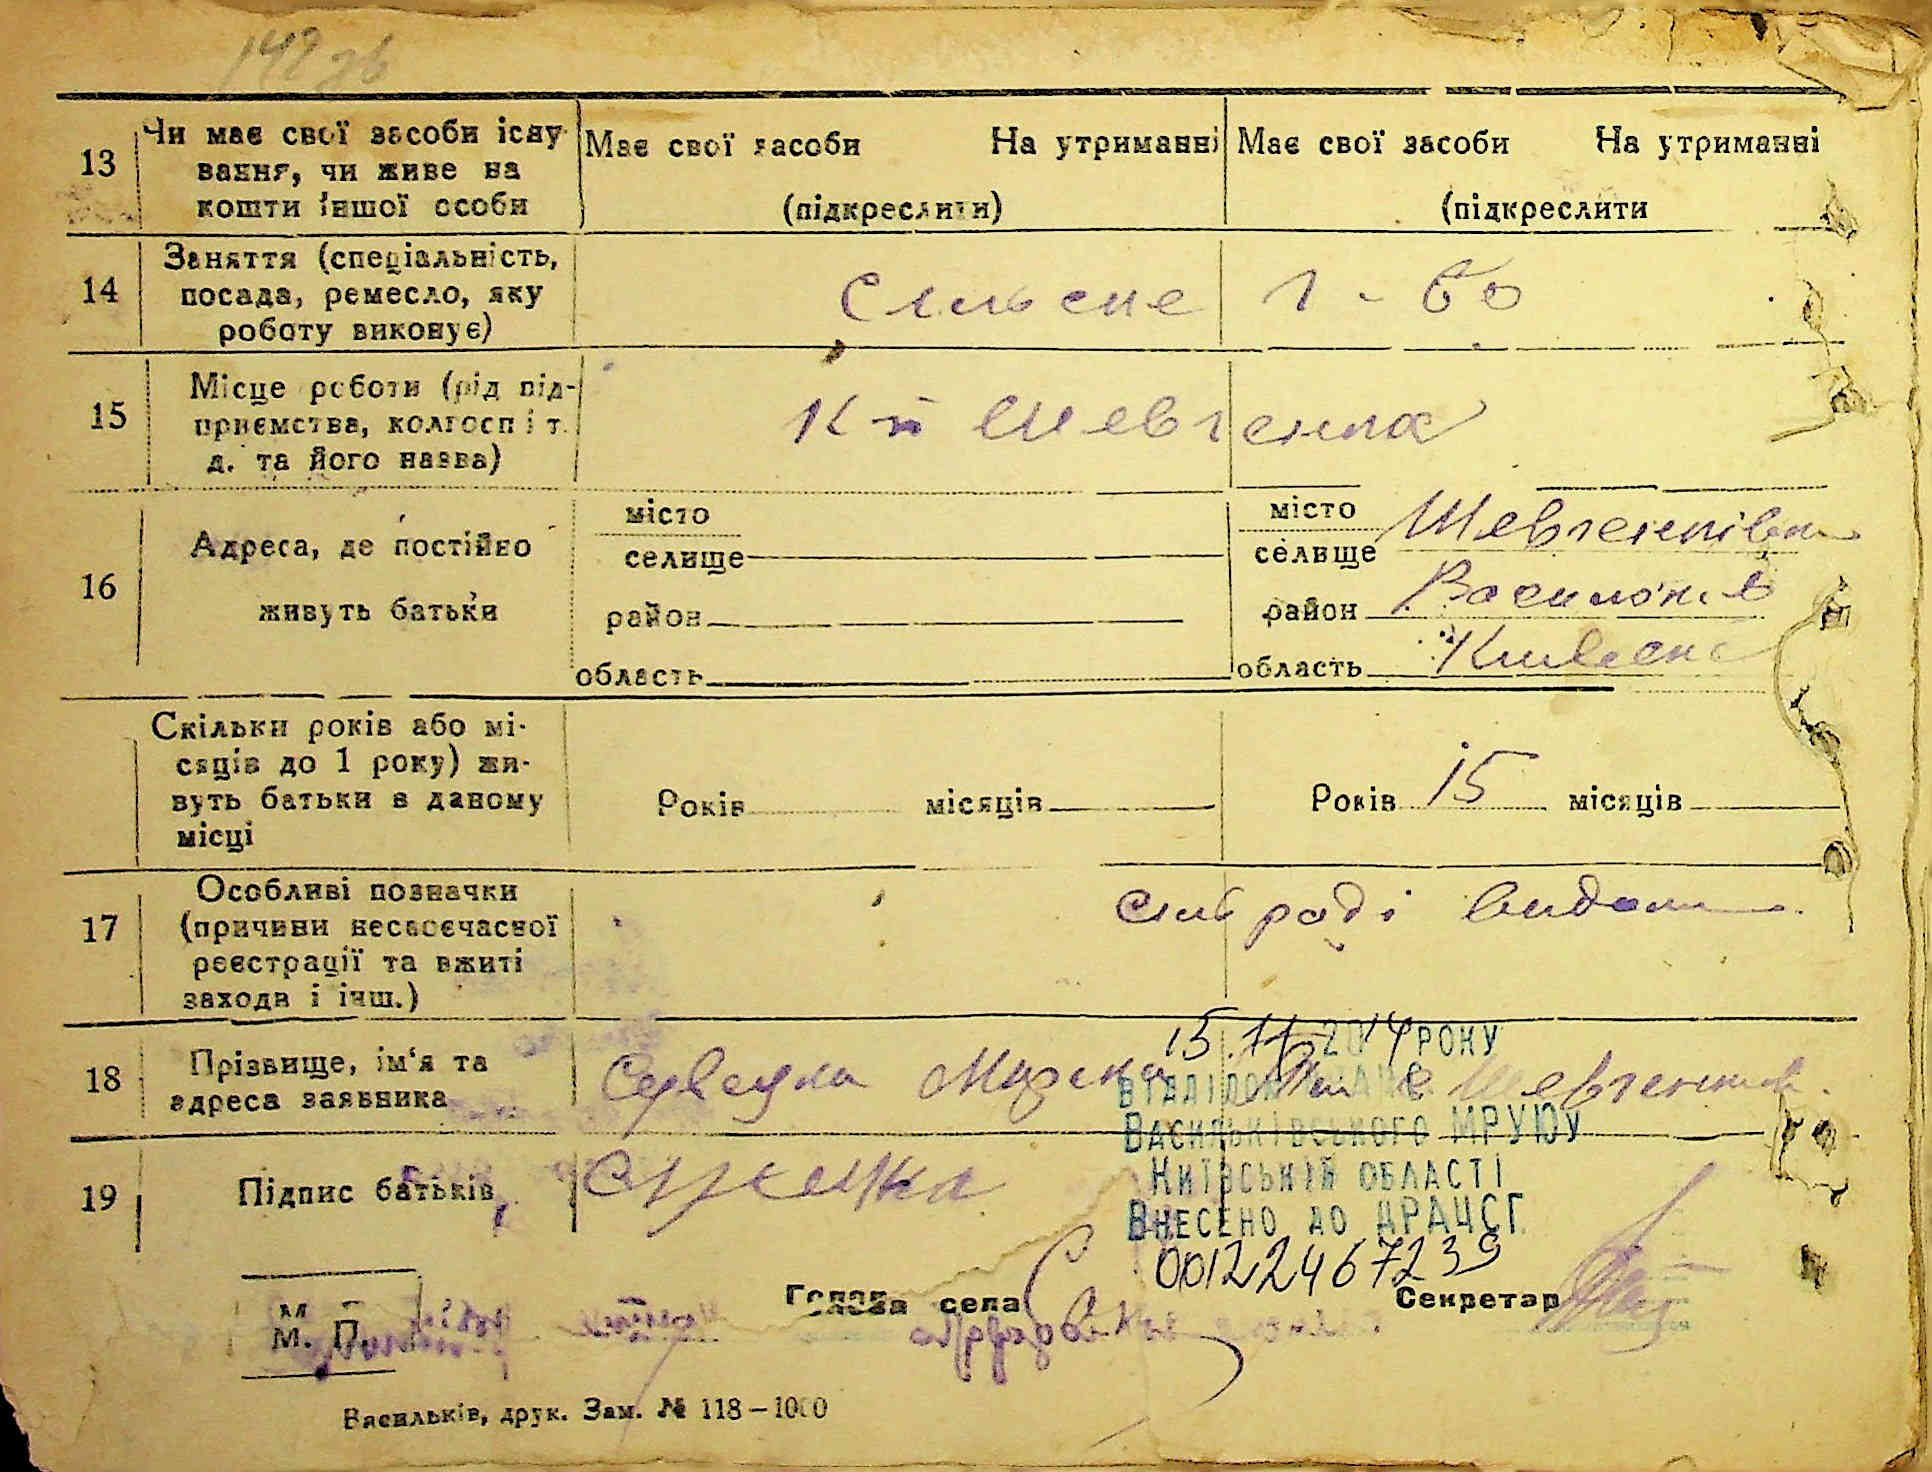 142 зв
13 Чи має свої засоби існу
вання, чи живе на
кошти іншої особи
Має свої засоби На утриманні
(підкреслити)
Має свої засоби На утриманні
(підкреслити
14 Заняття (спеціальність,
посада, ремесло, яку
роботу виконує)
Сільське г-во
15 Місце роботи (рід під-
приємства, колгосп і т.
д. та його назва)
К-п Шевченка
16 Адреса, де постійно
живуть батьки
місто
селище
район
область
місто
селище Шевченківка
район Васильків
область Київська
Скільки років або мі-
сяців до 1 року) жи-
вуть батьки в даному
місці
Років місяців
Років 15 місяців
17 Особливі позначки
(причини несвоєчасної
реєстрації та вжиті
заходи і інш.)
сільраді
18 Прізвище, ім'я та
адреса заявника
15.11.2014 РОКУ
ВІДДІЛОМ
ВАСИЛЬКІВСЬКОГО МРУЮУ
КИЇВСЬКІЙ ОБЛАСТІ
ВНЕСЕНО ДО ДРАЦСГ
00122467239
19 Підпис батьків
М
М. П.
Голова села
Секретар
Васильків, друк. Зам. № 118—1000